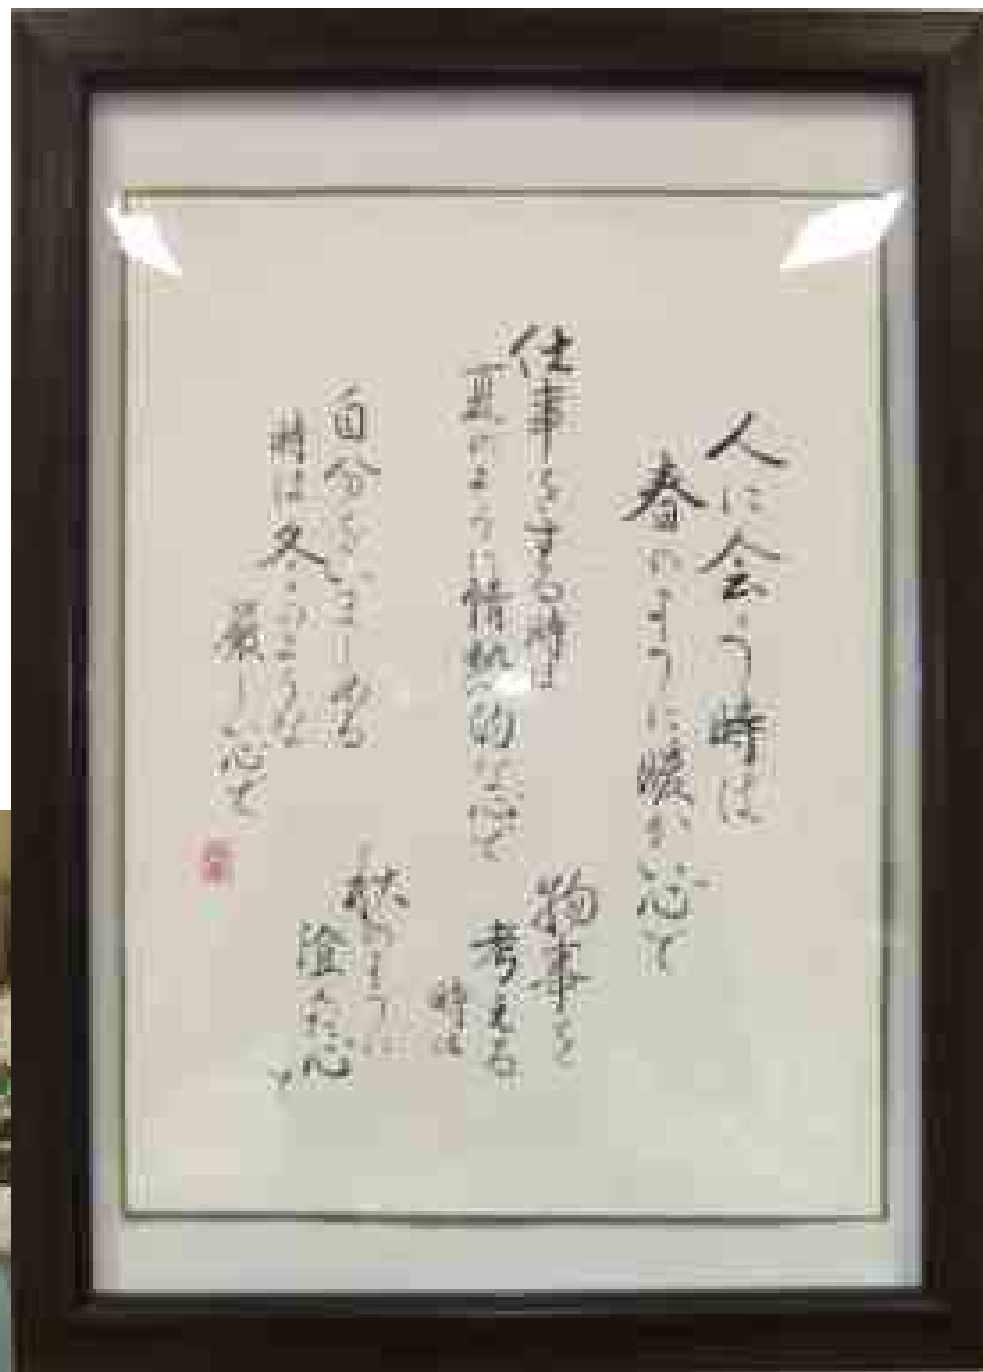 人に会う時は
春のように暖かい心で
仕事をする時は
夏のように情熱的な心で
物事を
考える
時は
秋のように
澄んだ心
で
自分をいましめる
時は冬のような
厳しい心で